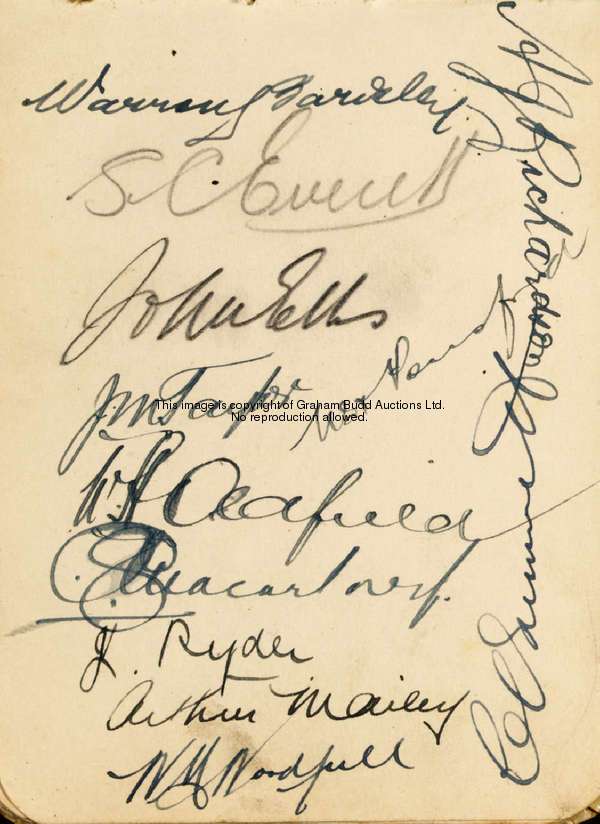 Warren Bardsley
S C Everett
John Ellis
J M Taylor
This image is copyright of Graham Budd Auctions Ltd.
No reproduction allowed.
W A Oldfield
C G Macartney.
J. Ryder
Arthur Mailey
W M Woodfull
A J Richardson